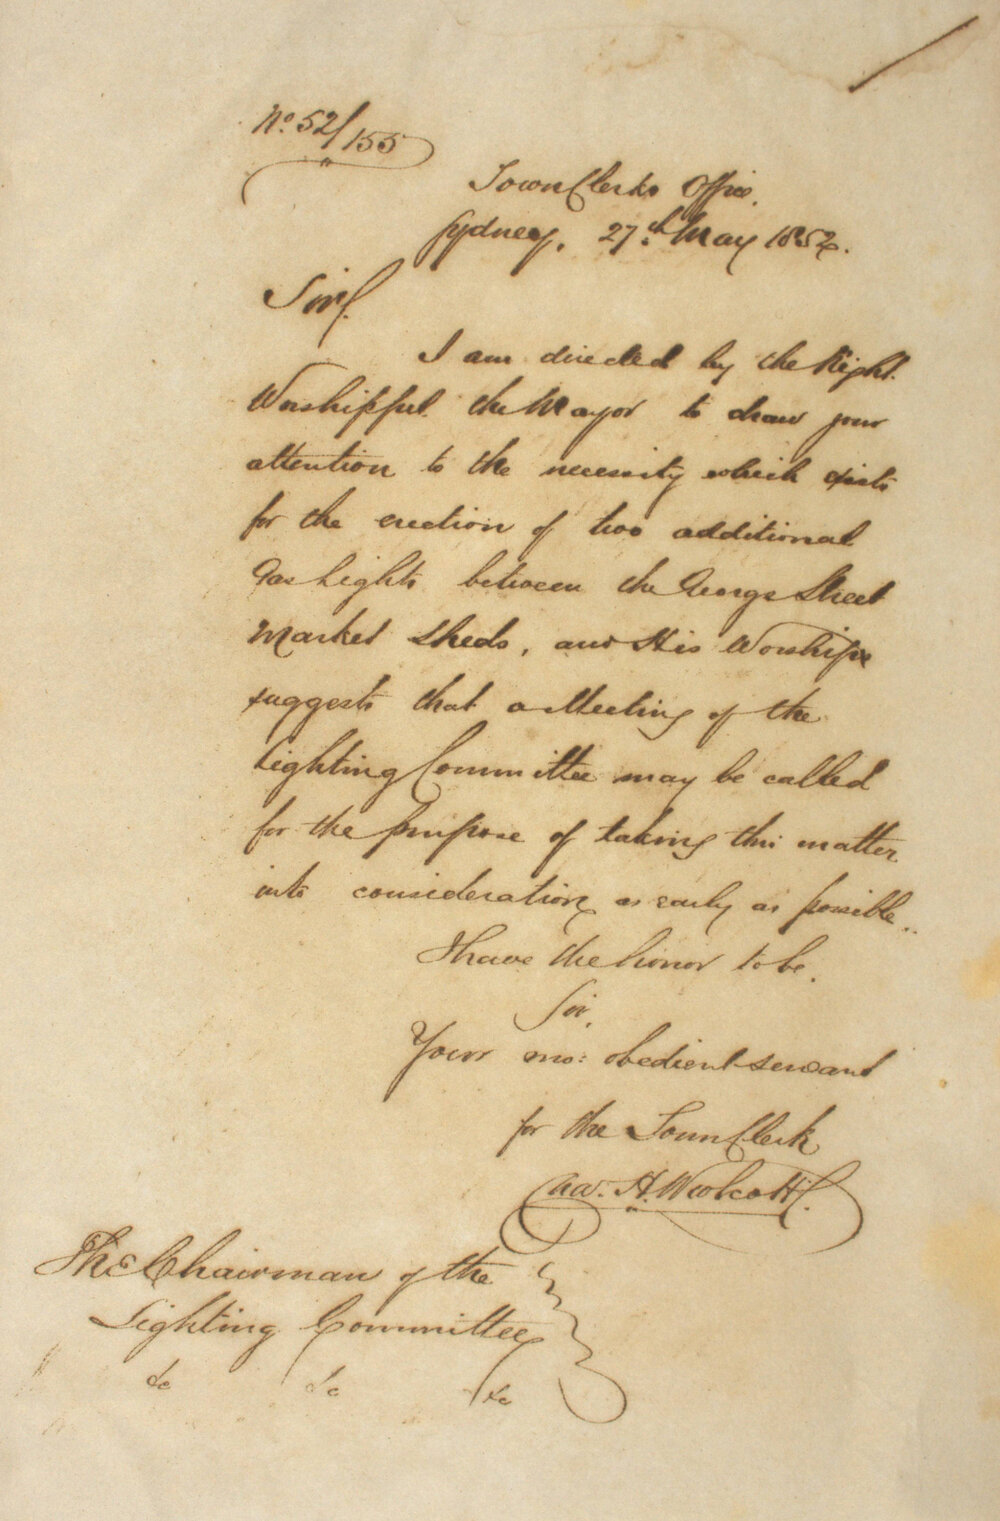 No. 52/155
Town Clerks Office.
Sydney, 27th May 1852.
Sir,
I am directed by the Right
Worshipful the Mayor to draw your
attention to the necessity which exists
for the erection of two additional
Gas Lights between the George Street
Market Sheds, and His Worship
suggests that a Meeting of the
Lighting Committee may be called
for the purpose of taking this matter
into consideration as early as possible.
I have the honor to be.
Sir,
Your mo: obedient servant
for the Town Clerk
H. Woolcott
The Chairman of the
Lighting Committee
&c &c &c